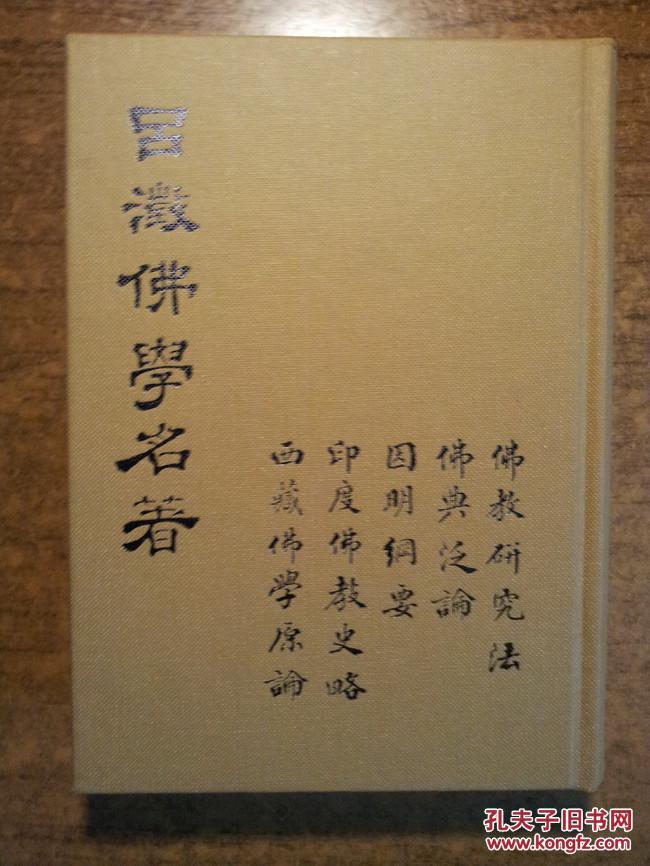 呂澂佛學名著
佛教研究法
佛典泛論
因明綱要
印度佛教史略
西藏佛學原論
孔夫子旧书网
www.kongfz.com